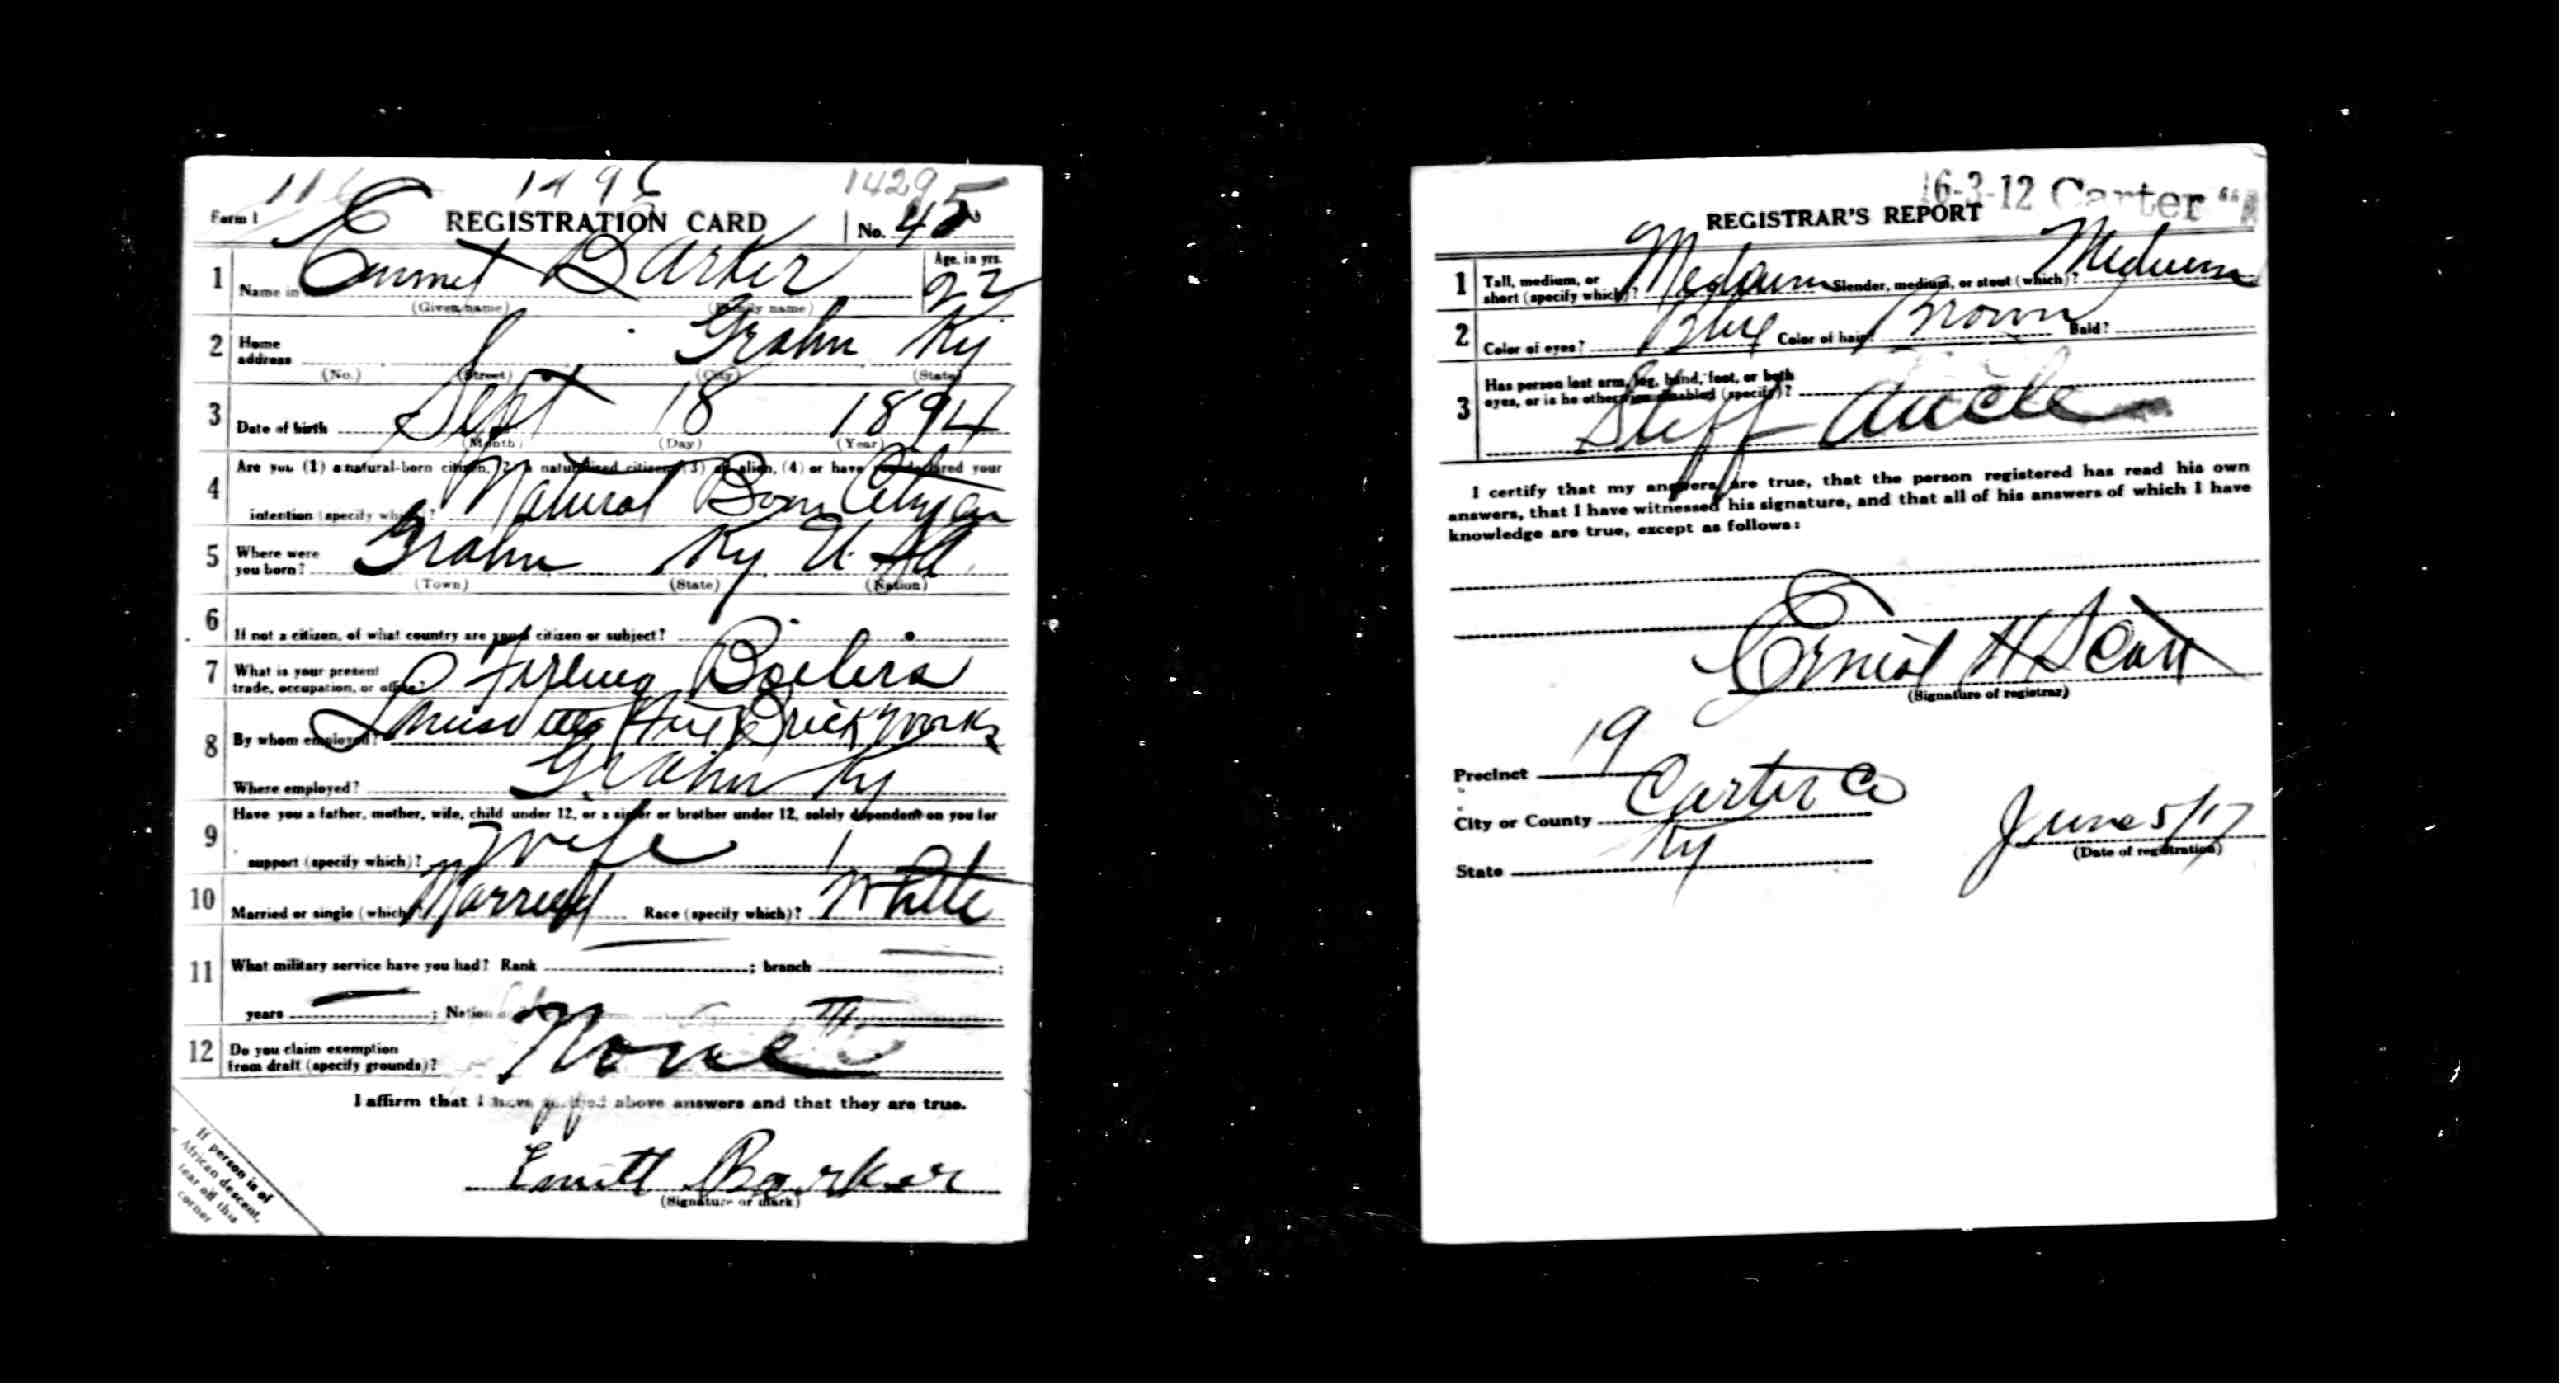 1496
14295
Form 1 REGISTRATION CARD No. 45
1 Name in Emmet Barker Age, in yrs. 22
(Given name) (Family name)
2 Home address Grahn Ky
(No.) (Street) (City) (State)
3 Date of birth Sept 18 1894
(Month) (Day) (Year)
4 Are you (1) a natural-born citizen, (2) a naturalized citizen, (3) an alien, (4) or have you declared your
intention (specify which)? Natural Born Citizen
5 Where were you born? Grahn Ky U.S.A
(Town) (State) (Nation)
6 If not a citizen, of what country are you a citizen or subject?
7 What is your present trade, occupation, or office? Boilers
8 By whom employed? Fire Brick Works
Where employed? Grahn Ky
9 Have you a father, mother, wife, child under 12, or a sister or brother under 12, solely dependent on you for
support (specify which)? Wife
10 Married or single (which)? Married Race (specify which)? White
11 What military service have you had? Rank ; branch ;
years ; Nation
12 Do you claim exemption from draft (specify grounds)? None
I affirm that I have verified above answers and that they are true.
Emitt Barker
(Signature or mark)
If person is of
African descent,
tear off this
corner
16-3-12 Carter "A
REGISTRAR'S REPORT
1 Tall, medium, or short (specify which)? Medium Slender, medium, or stout (which)? Medium
2 Color of eyes? Blue Color of hair? Brown Bald?
3 Has person lost arm, leg, hand, foot, or both
eyes, or is he otherwise disabled (specify)?
Stiff Ancle
I certify that my answers are true, that the person registered has read his own
answers, that I have witnessed his signature, and that all of his answers of which I have
knowledge are true, except as follows:
Ernest H Scott
(Signature of registrar)
Precinct 19
City or County Carter Co
State Ky
June 5/17
(Date of registration)